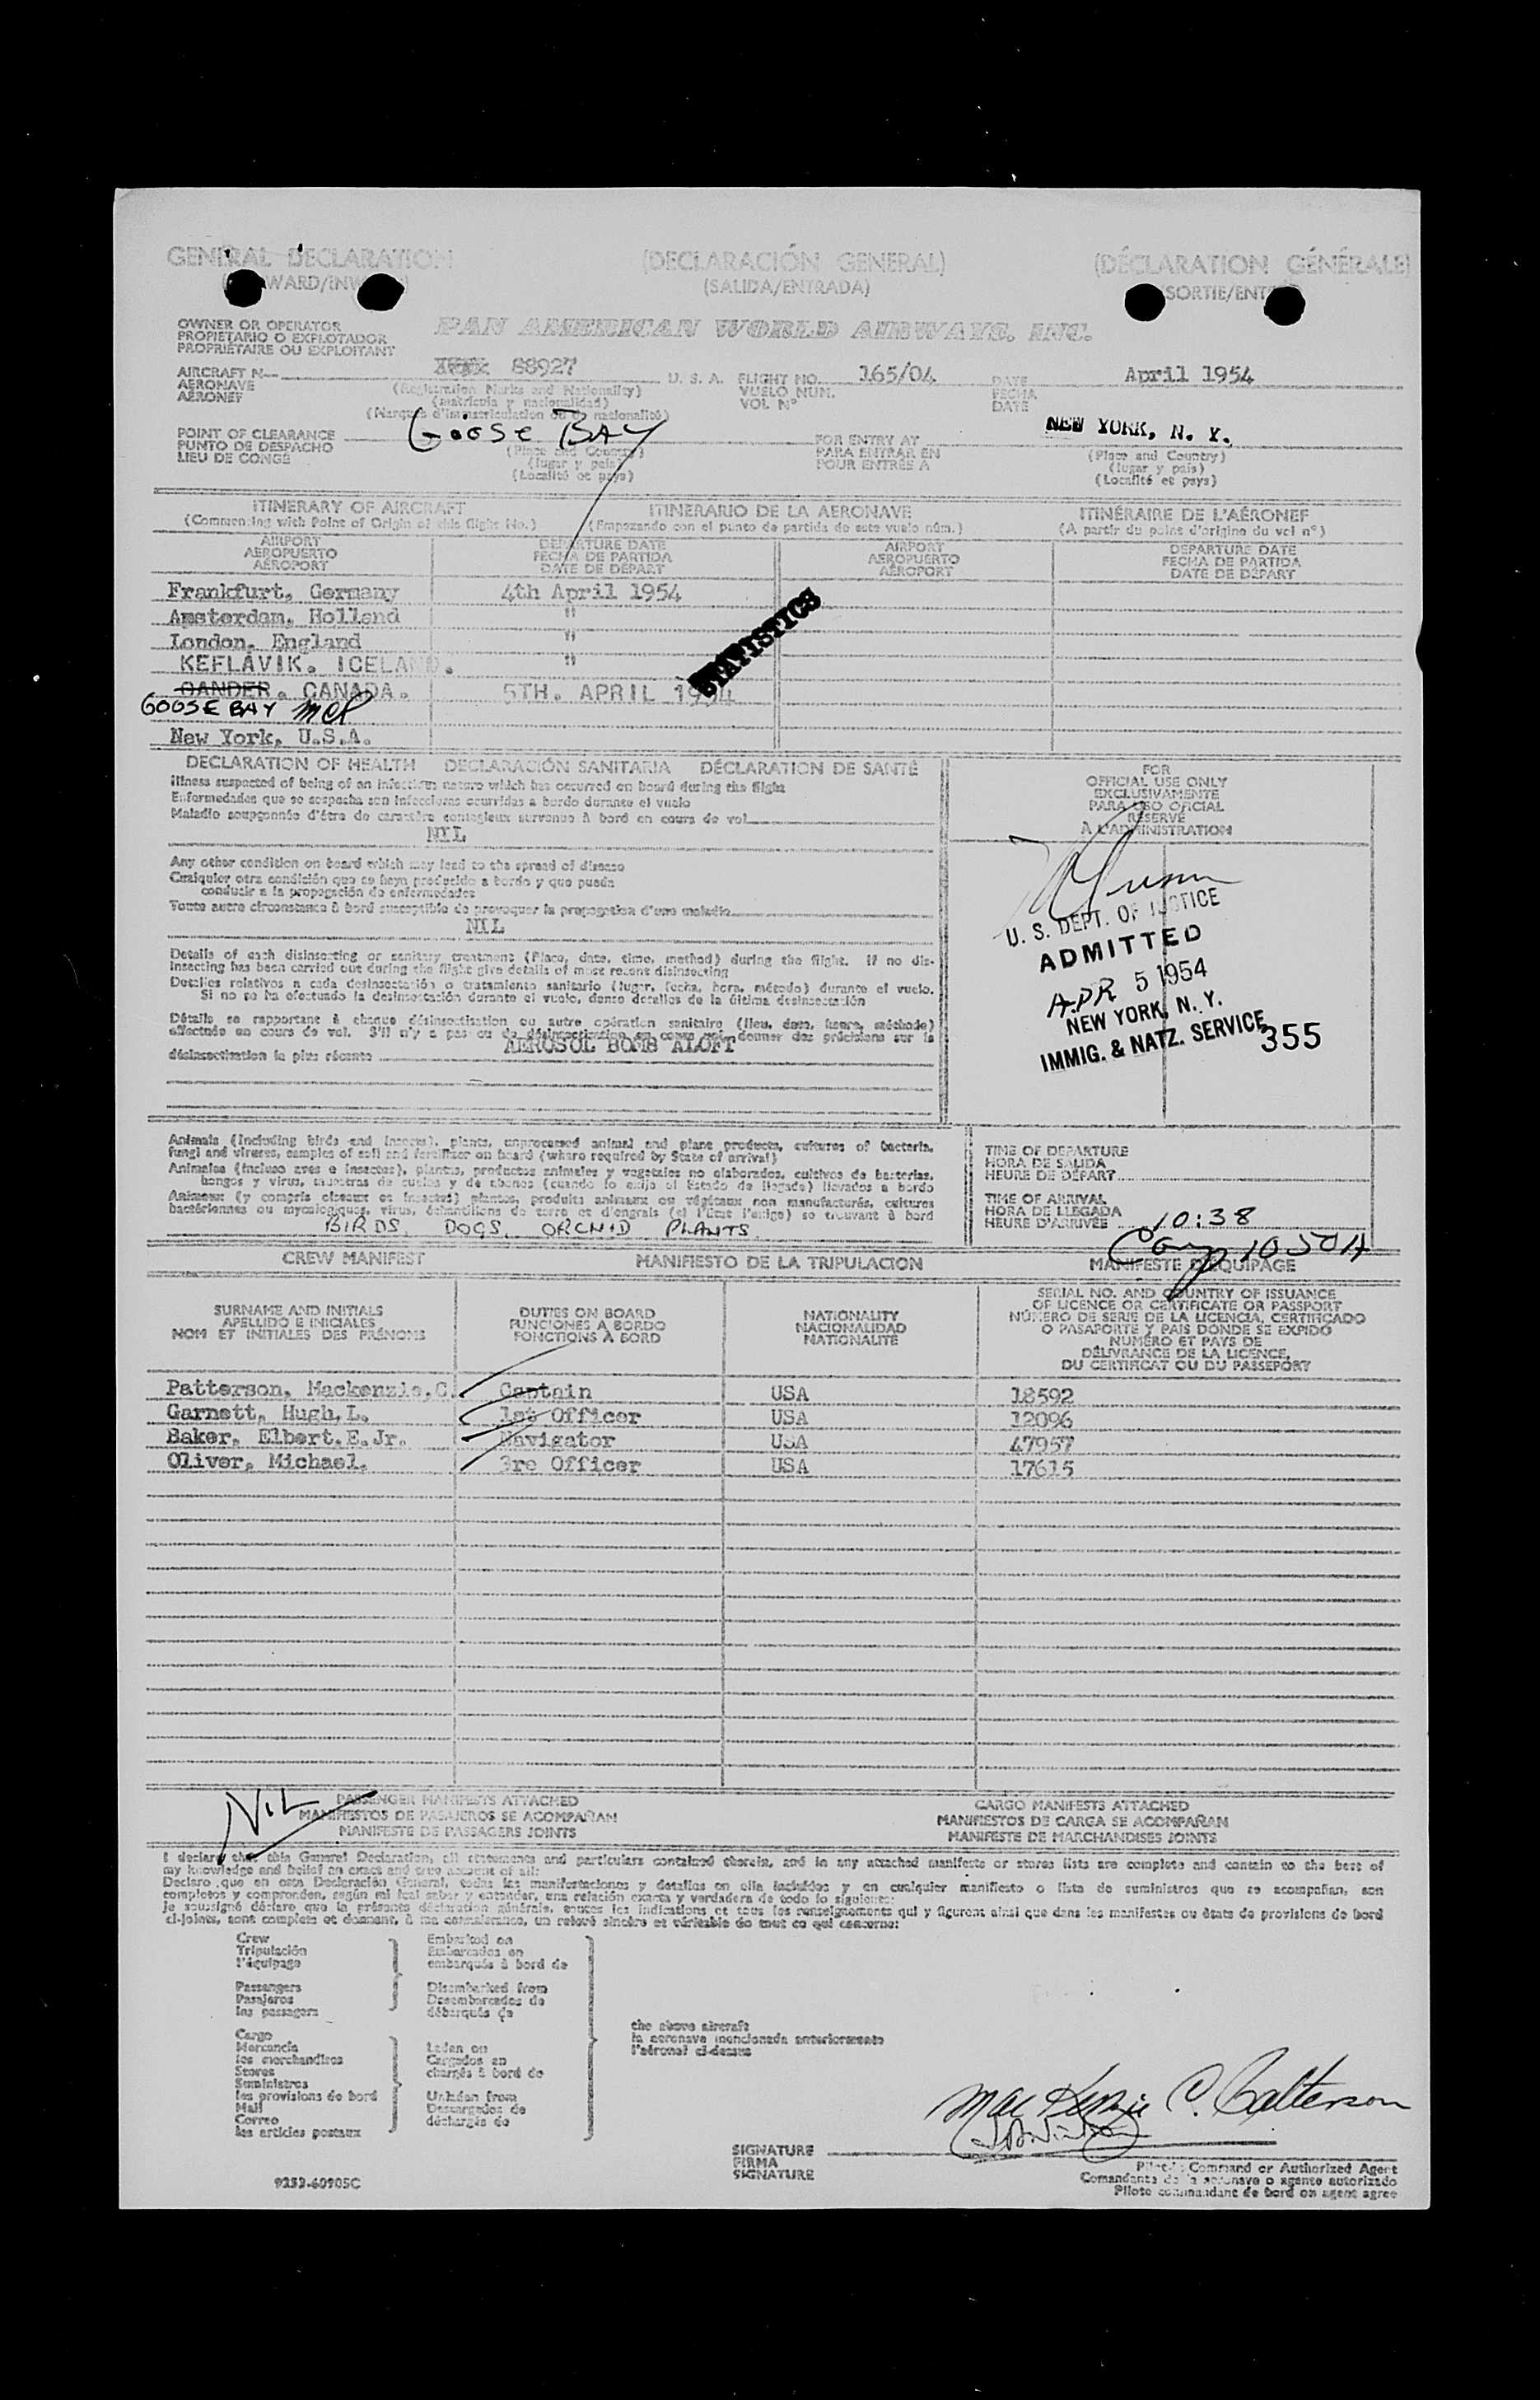 GENERAL DECLARATION
(DECLARACIÓN GENERAL)
(DÉCLARATION GÉNÉRALE)
(SALIDA/ENTRADA)
OWNER OR OPERATOR
PROPIETARIO O EXPLOTADOR
PROPRIÉTAIRE OU EXPLOITANT
PAN AMERICAN WORLD AIRWAYS, INC.
AIRCRAFT N
AERONAVE
AÉRONEF
88927
(Registration Marks and Nationality)
(matrícula y nacionalidad)
(Marques d'immatriculation ou de nationalité)
U. S. A.
FLIGHT NO. 165/04
VUELO NUM.
VOL Nº
DATE April 1954
FECHA
DATE
POINT OF CLEARANCE GOOSE BAY
PUNTO DE DESPACHO
LIEU DE CONGÉ
(Place and Country)
(lugar y país)
(Localité et pays)
FOR ENTRY AT NEW YORK, N. Y.
PARA ENTRAR EN
POUR ENTRÉE A
(Place and Country)
(lugar y país)
(Localité et pays)
ITINERARY OF AIRCRAFT
(Commencing with Point of Origin of this flight No.)
ITINERARIO DE LA AERONAVE
(Empezando con el punto de partida de este vuelo núm.)
ITINÉRAIRE DE L'AÉRONEF
(A partir du point d'origine du vol nº)
AIRPORT
AEROPUERTO
AÉROPORT
DEPARTURE DATE
FECHA DE PARTIDA
DATE DE DÉPART
AIRPORT
AEROPUERTO
AÉROPORT
DEPARTURE DATE
FECHA DE PARTIDA
DATE DE DÉPART
Frankfurt, Germany 4th April 1954
Amsterdam, Holland "
London, England "
KEFLAVIK. ICELAND. "
GANDER. CANADA. 5TH. APRIL 1954
GOOSE BAY MCP
New York, U.S.A.
STATISTICS
DECLARATION OF HEALTH DECLARACIÓN SANITARIA DÉCLARATION DE SANTÉ
Illness suspected of being of an infectious nature which has occurred on board during the flight
Enfermedades que se sospecha son infecciosas ocurridas a bordo durante el vuelo
Maladie soupçonnée d'être de caractère contagieux survenue à bord en cours de vol
NIL
Any other condition on board which may lead to the spread of disease
Cualquier otra condición que se haya producido a bordo y que pueda
conducir a la propagación de enfermedades
Toute autre circonstance à bord susceptible de provoquer la propagation d'une maladie
NIL
Details of each disinsecting or sanitary treatment (Place, date, time, method) during the flight. If no dis-
insecting has been carried out during the flight give details of most recent disinsecting
Detalles relativos a cada desinsectación o tratamiento sanitario (lugar, fecha, hora, método) durante el vuelo.
Si no se ha efectuado la desinsectación durante el vuelo, dense detalles de la última desinsectación
Détails se rapportant à chaque désinsectisation ou autre opération sanitaire (lieu, date, heure, méthode)
effectuée en cours de vol. S'il n'y a pas eu de désinsectisation en cours vol, donner des précisions sur la
désinsectisation la plus récente AEROSOL BOMB ALOFT
FOR
OFFICIAL USE ONLY
EXCLUSIVAMENTE
PARA USO OFICIAL
RÉSERVÉ
À L'ADMINISTRATION
U. S. DEPT. OF JUSTICE
ADMITTED
APR 5 1954
NEW YORK, N. Y.
IMMIG. & NATZ. SERVICE
355
Animals (including birds and insects), plants, unprocessed animal and plant products, cultures of bacteria,
fungi and viruses, samples of soil and fertilizer on board (where required by State of arrival)
Animales (incluso aves e insectos), plantas, productos animales y vegetales no elaborados, cultivos de bacterias,
hongos y virus, muestras de suelos y de abonos (cuando lo exija el Estado de llegada) llevados a bordo
Animaux (y compris oiseaux et insectes) plantes, produits animaux ou végétaux non manufacturés, cultures
bactériennes ou mycologiques, virus, échantillons de terre et d'engrais (si l'État l'exige) se trouvant à bord
BIRDS, DOGS, ORCHID PLANTS.
TIME OF DEPARTURE
HORA DE SALIDA
HEURE DE DÉPART
TIME OF ARRIVAL
HORA DE LLEGADA
HEURE D'ARRIVÉE 10:38
CREW MANIFEST
MANIFIESTO DE LA TRIPULACION
MANIFESTE D'EQUIPAGE
SURNAME AND INITIALS
APELLIDO E INICIALES
NOM ET INITIALES DES PRÉNOMS
DUTIES ON BOARD
FUNCIONES A BORDO
FONCTIONS À BORD
NATIONALITY
NACIONALIDAD
NATIONALITÉ
SERIAL NO. AND COUNTRY OF ISSUANCE
OF LICENCE OR CERTIFICATE OR PASSPORT
NÚMERO DE SERIE DE LA LICENCIA, CERTIFICADO
O PASAPORTE Y PAIS DONDE SE EXPIDÓ
NUMÉRO ET PAYS DE
DÉLIVRANCE DE LA LICENCE,
DU CERTIFICAT OU DU PASSEPORT
Patterson, Mackenzie,C. Captain USA 18592
Garnett, Hugh,L. 1st Officer USA 12096
Baker, Elbert.E.Jr. Navigator USA 47957
Oliver, Michael. 3re Officer USA 17615
NIL
PASSENGER MANIFESTS ATTACHED
MANIFIESTOS DE PASAJEROS SE ACOMPAÑAN
MANIFESTE DE PASSAGERS JOINTS
CARGO MANIFESTS ATTACHED
MANIFIESTOS DE CARGA SE ACOMPAÑAN
MANIFESTE DE MARCHANDISES JOINTS
I declare that this General Declaration, all statements and particulars contained therein, and in any attached manifests or stores lists are complete and contain to the best of
my knowledge and belief an exact and true account of all:
Declaro que en esta Declaración General, todas las manifestaciones y detalles en ella incluídos y en cualquier manifiesto o lista de suministros que se acompañan, son
completos y comprenden, según mi leal saber y entender, una relación exacta y verdadera de todo lo siguiente:
Je soussigné déclare que la présente déclaration générale, toutes les indications et tous les renseignements qui y figurent ainsi que dans les manifestes ou états de provisions de bord
ci-joints, sont complets et donnent, à ma connaissance, un relevé sincère et véritable de tout ce qui concerne:
Crew
Tripulación
l'équipage
Passengers
Pasajeros
les passagers
Embarked on
Embarcados en
embarqués à bord de
Disembarked from
Desembarcados de
débarqués de
Cargo
Mercancía
les marchandises
Stores
Suministros
les provisions de bord
Mail
Correo
les articles postaux
Laden on
Cargados en
chargés à bord de
Unladen from
Descargados de
déchargés de
the above aircraft
la aeronave mencionada anteriormente
l'aéronef ci-dessus
MacKenzie C. Patterson
SIGNATURE
FIRMA
SIGNATURE
Pilot in Command or Authorized Agent
Comandante de la aeronave o agente autorizado
Pilote commandant de bord on agent agree
9353-60905C